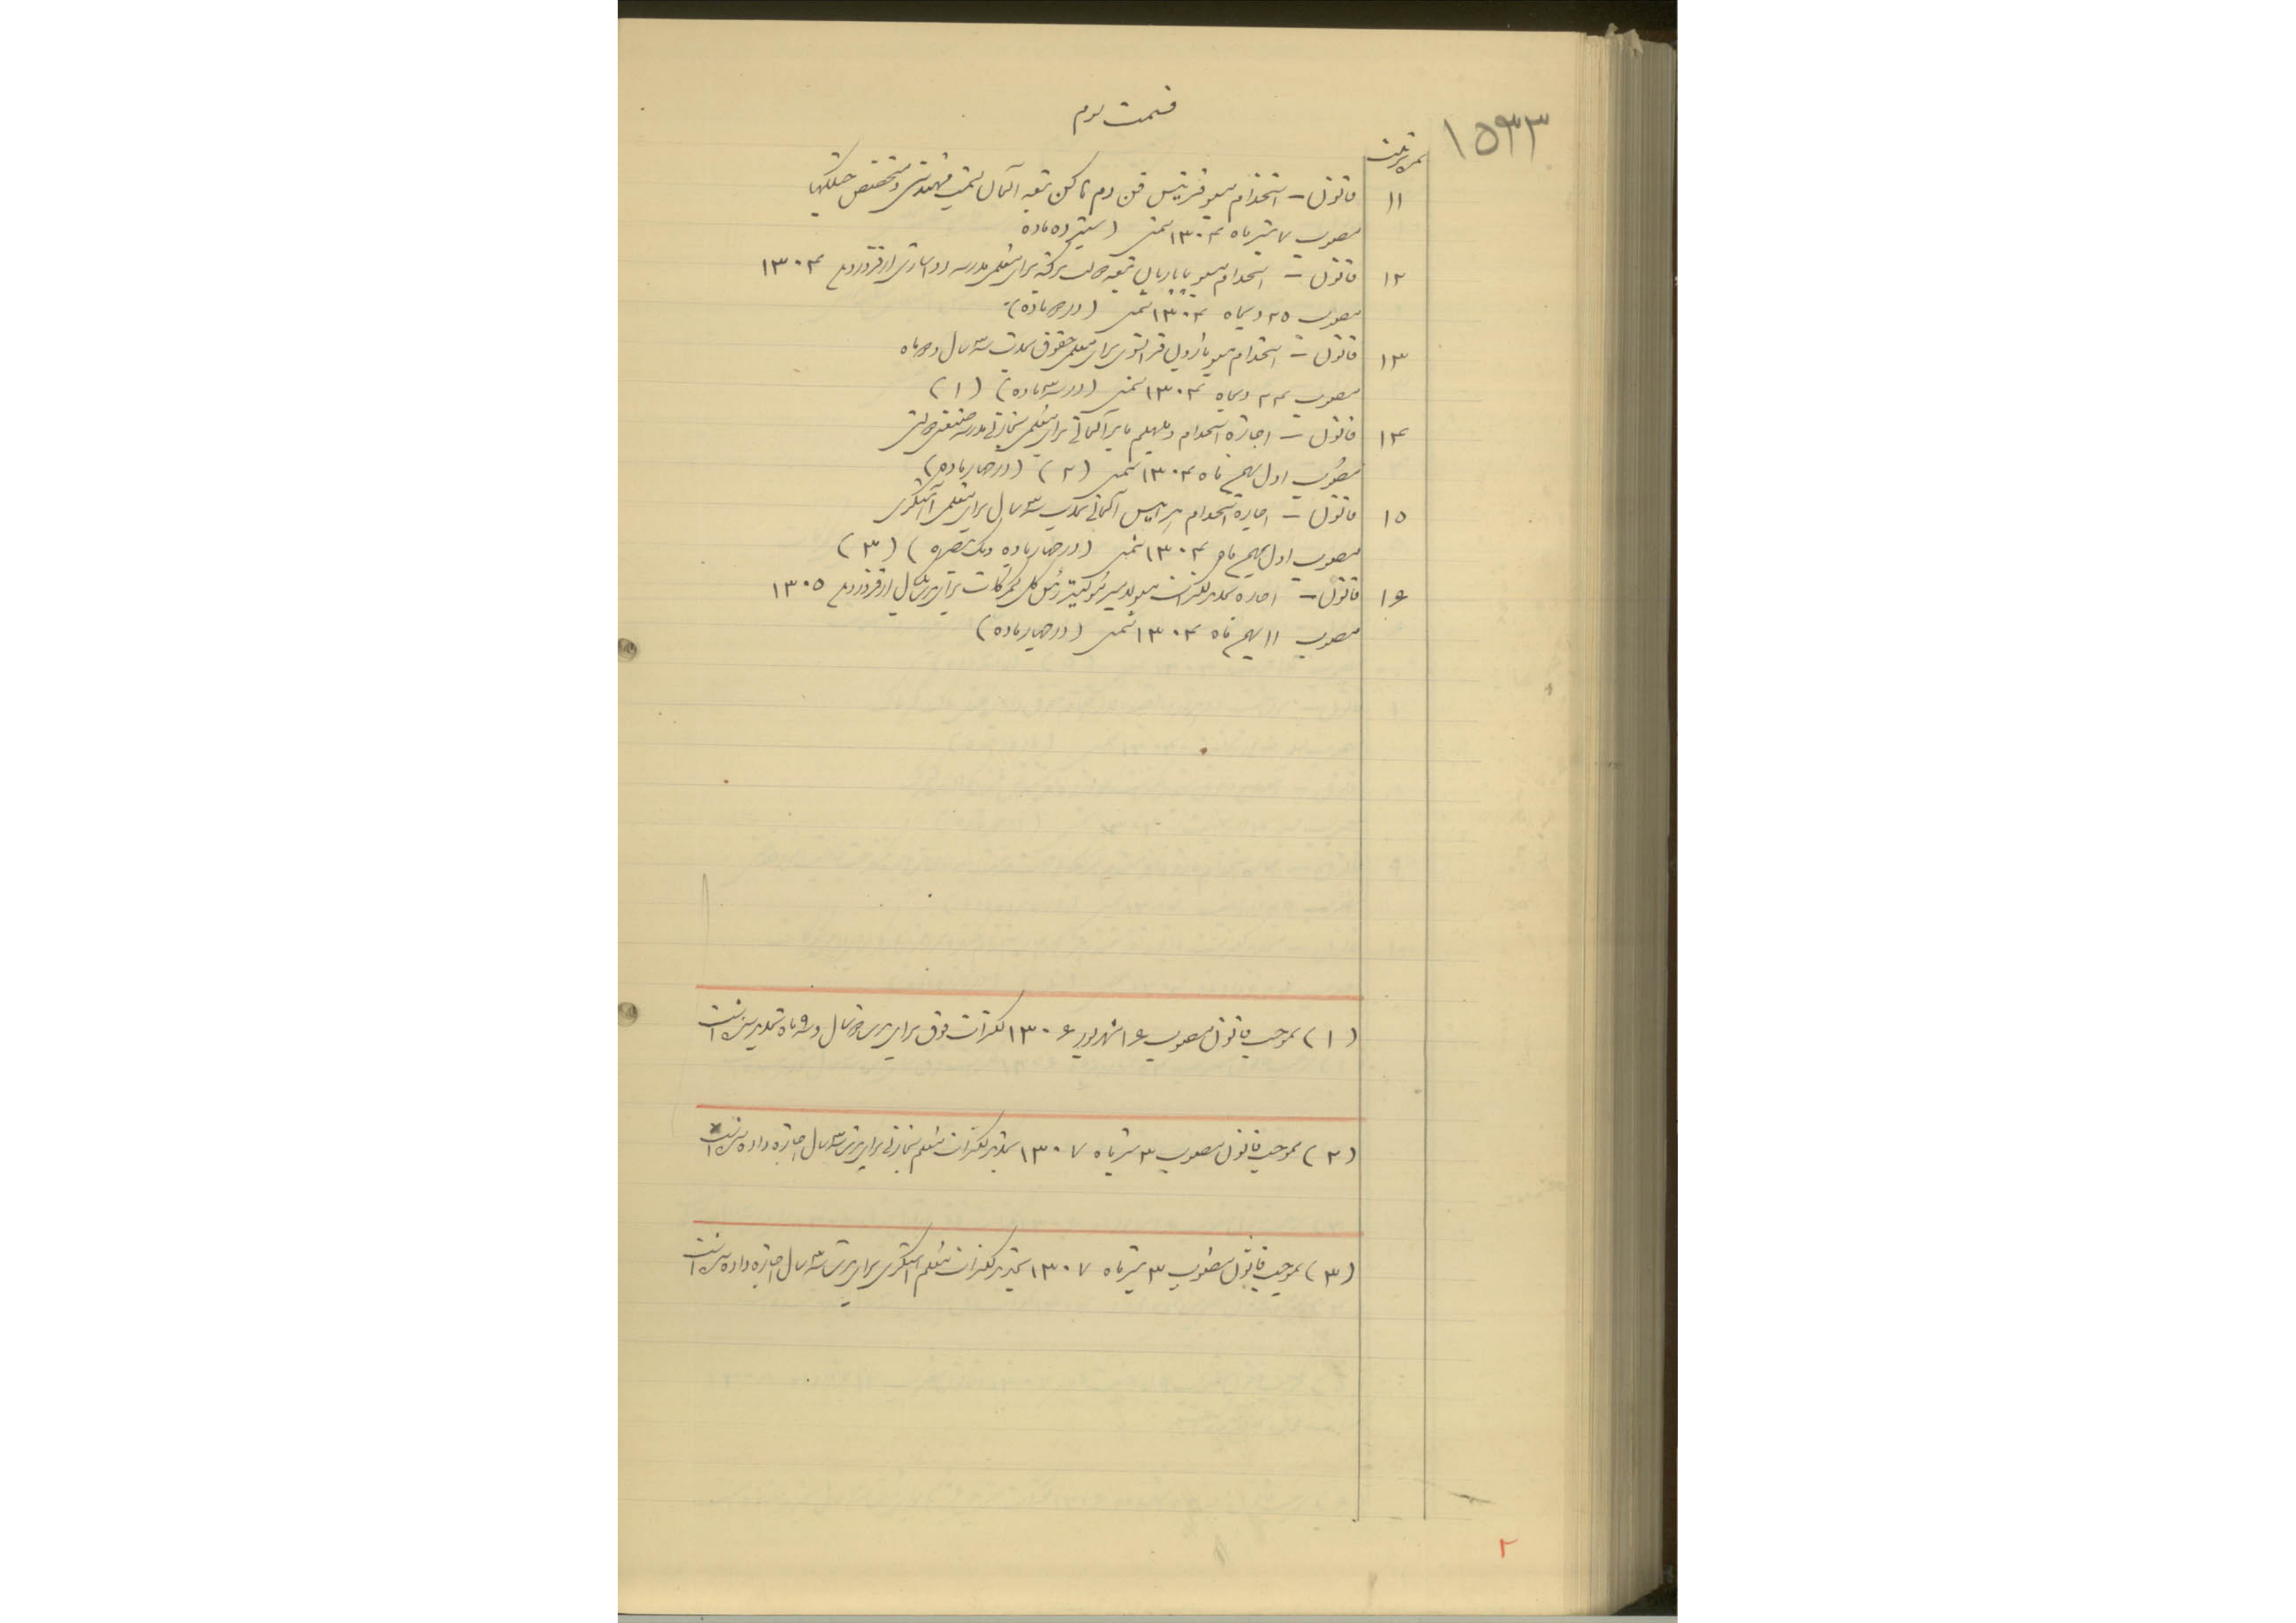 ۱۵۳۳
قسمت دوم
نمره ترتیب
۱۱ قانون – استخدام مسیو فریتس فن دم هاگن تبعه آلمان بسمت مهندسی و متخصص جنگلها
مصوب ۷ تیر ماه ۱۳۰۴ شمسی (سیزده ماده
۱۲ قانون – استخدام مسیو تبعه دولت ترکیه برای معلمی مدرسه دواسازی از فروردین ۱۳۰۴
مصوب ۲۵ دیماه ۱۳۰۴ شمسی (در ماده)
۱۳ قانون – استخدام مسیو فرانسوی برای معلمی حقوق بمدت سه سال و ماه
مصوب ۲۴ دیماه ۱۳۰۴ شمسی (در سه ماده) (۱)
۱۴ قانون – اجازه استخدام ویلهلم مایر آلمانی برای معلمی نجاری مدرسه صنعتی دولتی
مصوب اول بهمن ماه ۱۳۰۴ شمسی (۲) (در چهار ماده)
۱۵ قانون – اجازه استخدام آلمانی بمدت سه سال برای معلمی آهنگری
مصوب اول بهمن ماه ۱۳۰۴ شمسی (در چهار ماده و یک تبصره) (۳)
۱۶ قانون – اجازه تمدید کنترات مسیو رئیس کل گمرکات برای مدت سال از فروردین ۱۳۰۵
مصوب ۱۱ بهمن ماه ۱۳۰۴ شمسی (در چهار ماده)
(۱) بموجب قانون مصوب ۱۶ شهریور ۱۳۰۶ کنترات فوق برای مدت سال و ماه تمدید شده است
(۲) بموجب قانون مصوب ۳ تیر ماه ۱۳۰۷ تمدید کنترات معلم نجاری برای مدت سه سال اجازه داده شده است
(۳) بموجب قانون مصوب ۳ تیر ماه ۱۳۰۷ تمدید کنترات معلم آهنگری برای مدت سه سال اجازه داده شده است
۲